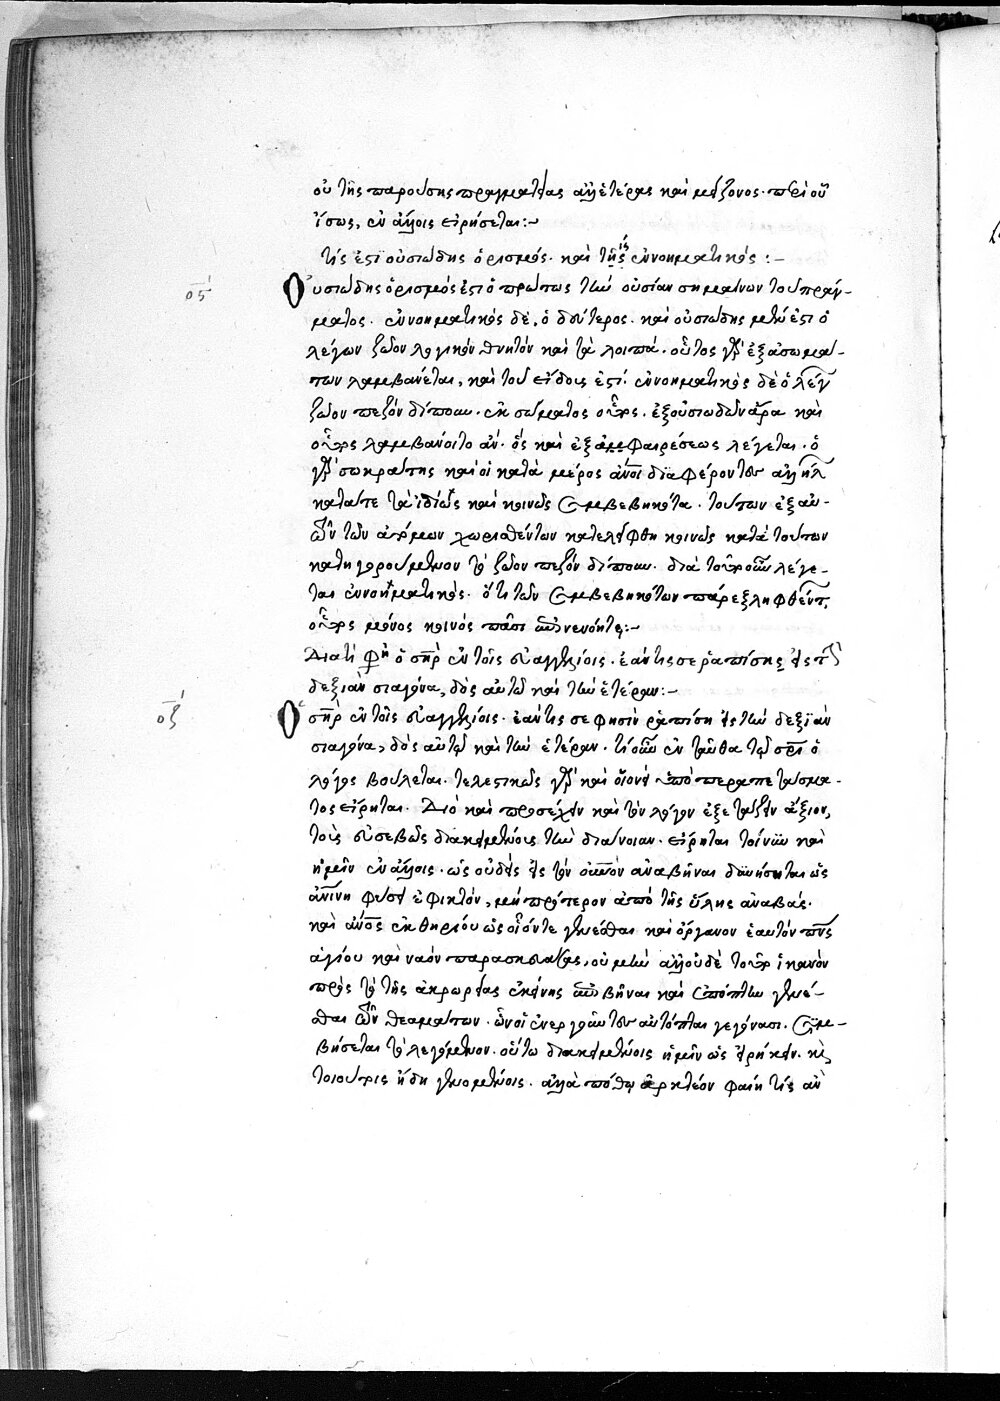 οὐ τῆς παρούσης πραγματείας ἀλλ' ἑτέρας καὶ μείζονος. περὶ οὗ
ἴσως, ἐν ἄλλοις εἰρήσεται:~
τίς ἐστὶ οὐσιώδης ὁρισμός. καὶ τίς ἐννοηματικός:~
ος
Οὐσιώδης ὁρισμός ἐστι ὁ πρώτως τὴν οὐσίαν σημαίνων τοῦ πράγ-
ματος. ἐννοηματικὸς δὲ, ὁ δεύτερος. καὶ οὐσιώδης μέν ἐστι ὁ
λέγων ζῶον λογικὸν θνητὸν καὶ τὰ λοιπά. οὗτος γὰρ ἐξ ἀσωμά-
των λαμβάνεται, καὶ τοῦ εἴδους ἐστί. ἐννοηματικὸς δὲ ὁ λέγων
ζῶον πεζὸν δίπουν. ἐκ σώματος οὗτος. ἐξ οὐσιωδῶν ἄρα καὶ
οὗτος λαμβάνοιτο ἄν. ὃς καὶ ἐξ ἀφαιρέσεως λέγεται. ὁ
γὰρ σωκράτης καὶ οἱ κατὰ μέρος ἄνοι διαφέροντες ἀλλήλων
κατά τε τὰ ἰδίως καὶ κοινῶς συμβεβηκότα. τούτων ἐξ αὐ-
τῶν τῶν ἀτόμων χωρισθέντων κατελείφθη κοινῶς κατὰ τούτων
κατηγορούμενον τὸ ζῶον πεζὸν δίπουν. διὰ τοῦτο οὖν λέγε-
ται ἐννοηματικός. ὅτι τῶν συμβεβηκότων παρεξληφθέντων,
οὗτος μόνος κοινὸς πᾶσι ἐπινενόηται:~
Διατί φησὶ ὁ σηρ ἐν τοῖς εὐαγγελίοις. ἐάν τις σε ῥαπίσῃ εἰς τὴν
δεξιὰν σιαγόνα, δὸς αὐτῶ καὶ τὴν ἑτέραν:~
οζ
Ὁ σηρ ἐν τοῖς εὐαγγελίοις. ἐάν τις σε φησὶν ῥαπίσῃ εἰς τὴν δεξιὰν
σιαγόνα, δὸς αὐτῷ καὶ τὴν ἑτέραν. τί οὖν ἐνταῦθα τῷ σρι ὁ
λόγος βούλεται. τελεστικῶς γὰρ καὶ οἷον ὑπὸ παραπετάσμα-
τος εἴρηται. Διὸ καὶ προσέχειν καὶ τὸν λόγον ἐξετάζειν ἄξιον,
τοῖς εὐσεβῶς διακειμένοις τὴν διάνοιαν. εἴρηται τοίνυν καὶ
ἡμῖν ἐν ἄλλοις. ὡς οὐδεὶς εἰς τὸν οὐνὸν ἀναβῆναι δυνήσηται ὡς
ἀνίνη φύσει ἐφικτὸν, μὴ πρότερον ἀπὸ τῆς ὕλης ἀναβάς.
καὶ ἄνος ἐκ θηρίου ὡς οἷόν τε γενέσθαι καὶ ὄργανον ἑαυτὸν πνς
ἁγίου καὶ ναὸν παρασκευάσας, οὐ μὴν ἀλλ' οὐδὲ τοῦτο ἱκανὸν
πρὸς τὸ τῆς ἀκρωρείας ἐκείνης ἐπιβῆναι καὶ ἐπόπτην γενέ-
σθαι τῶν θεαμάτων. ὧν οἱ ἐνεργοῦντες αὐτόπται γεγόνασι. συμ-
βήσεται τὸ λεγόμενον. οὕτω διακειμένοις ἡμῖν ὡς εἴρηκεν. καὶ
τοιούτοις ἤδη γενομένοις. ἀλλὰ πόθεν ἀρκτέον φαίη τίς ἂν